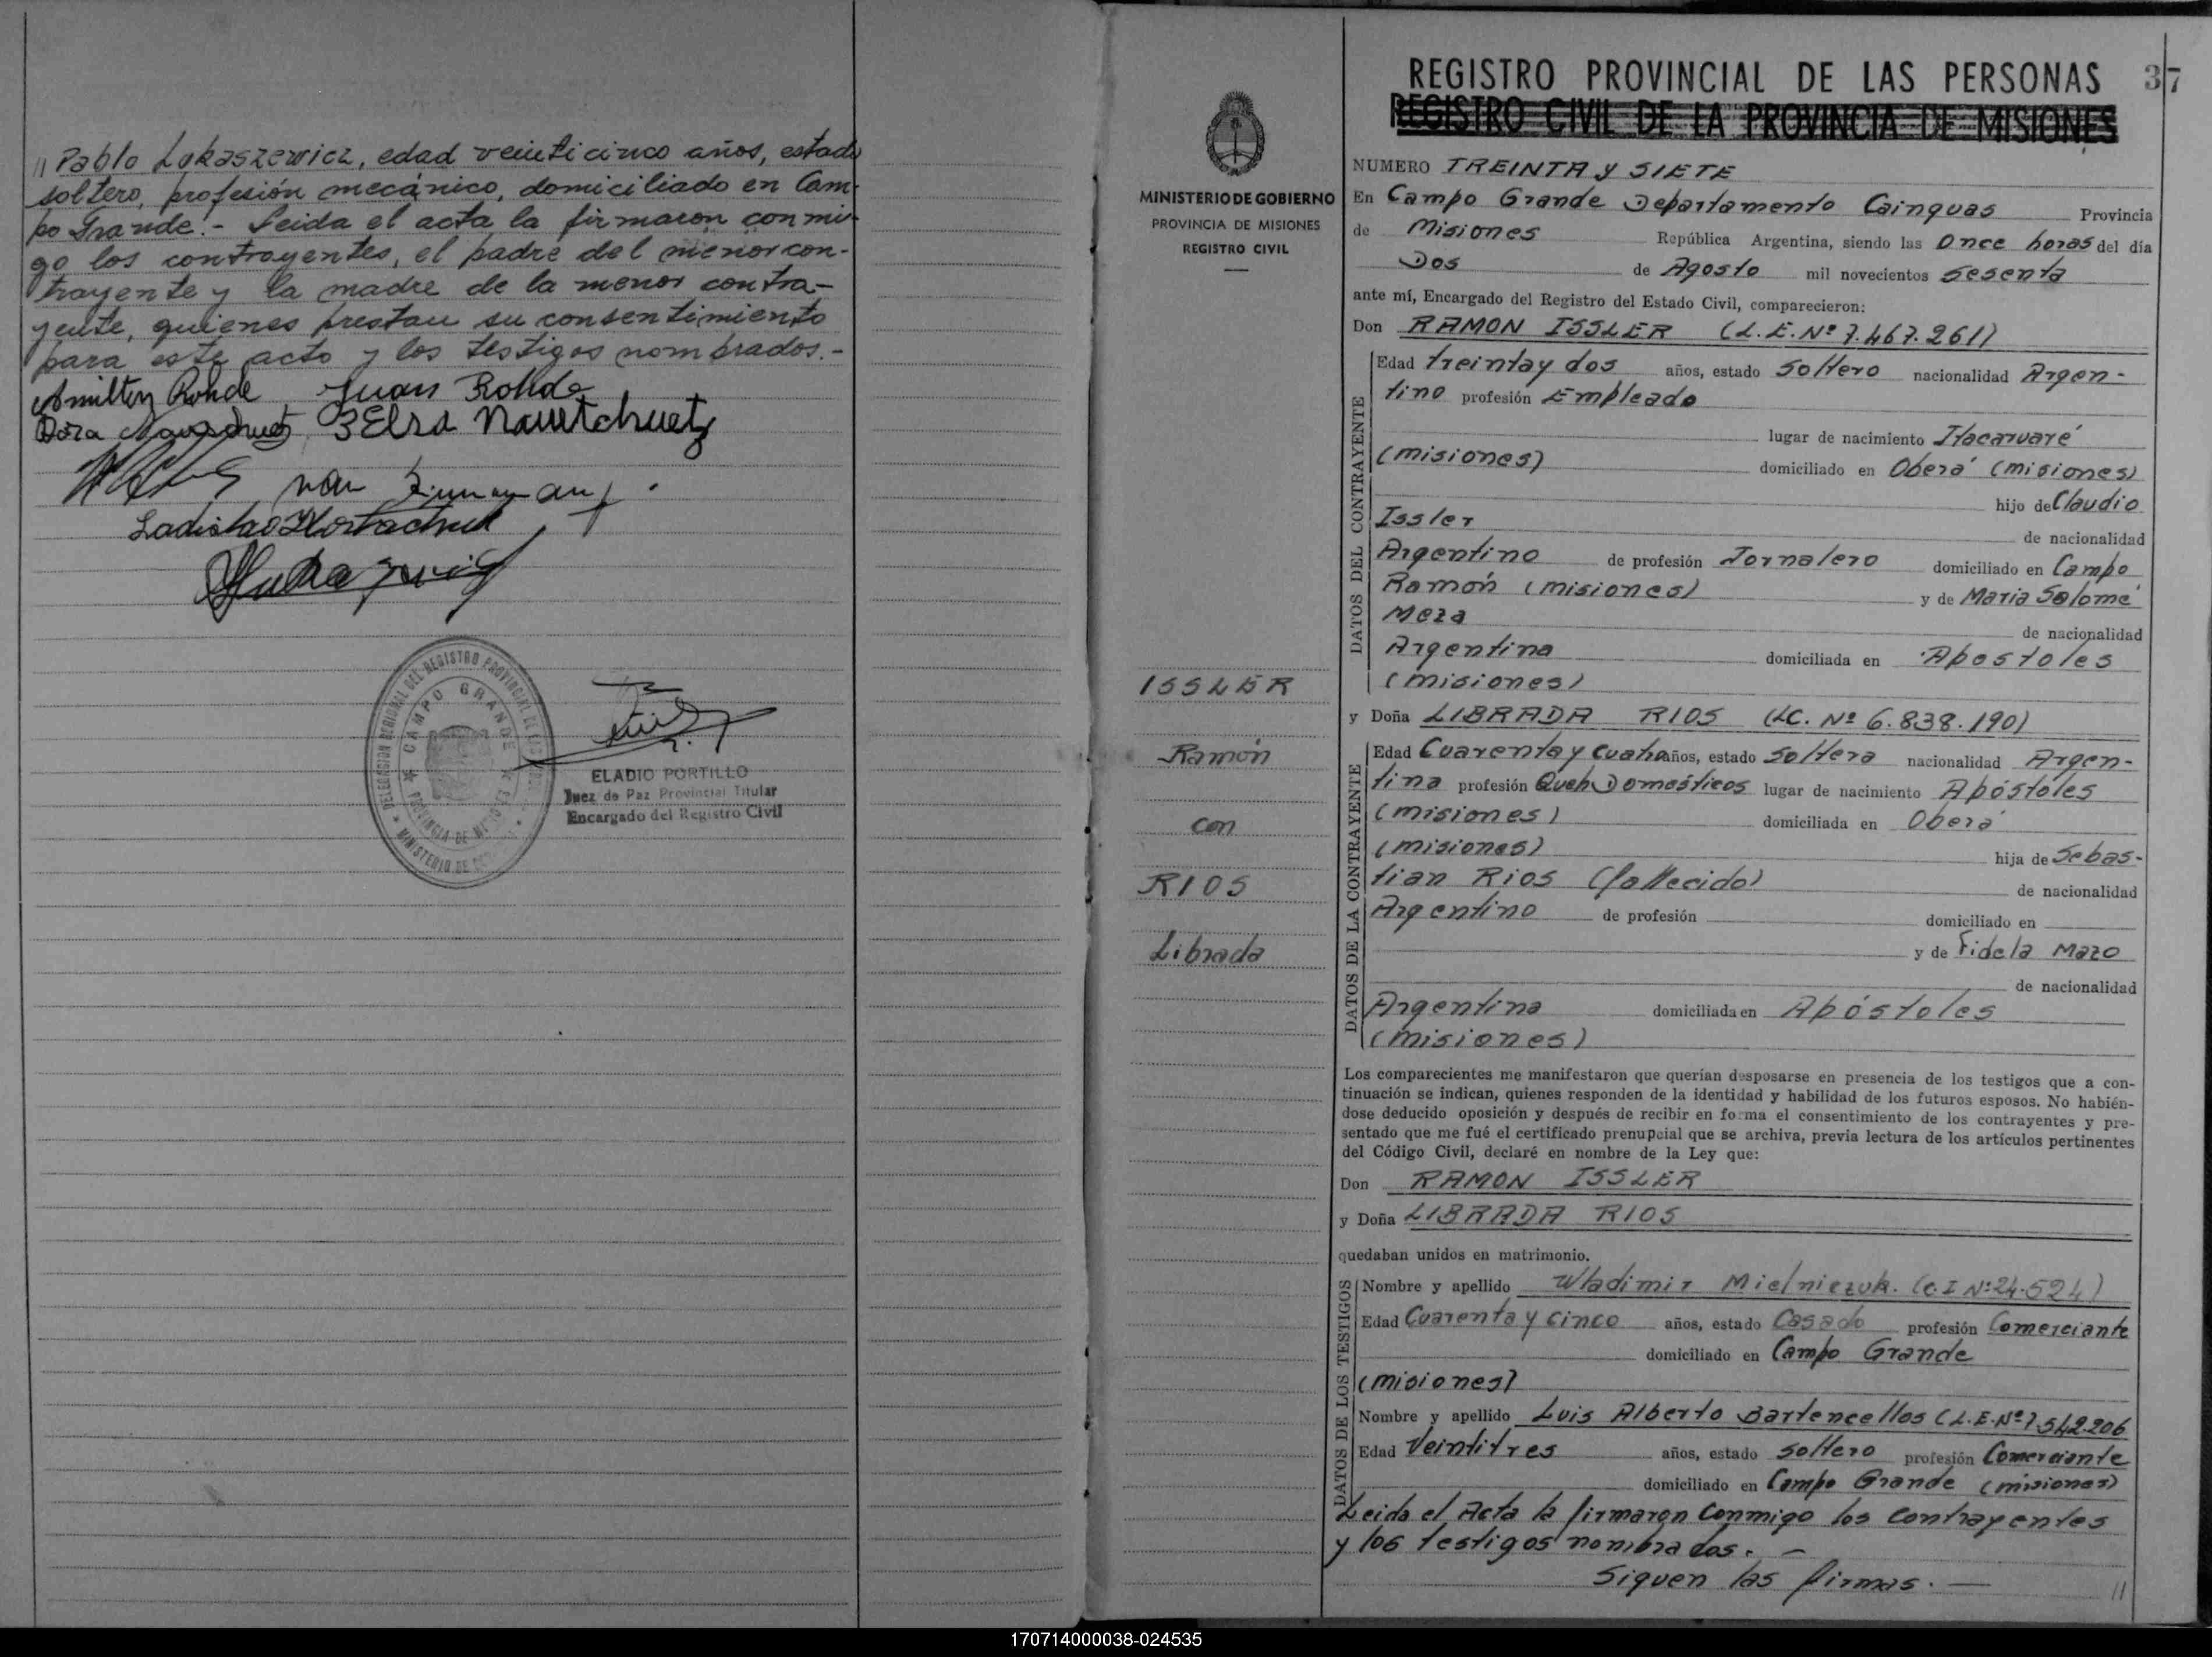 " Pablo Lukaszewicz, edad veinticinco años, estado
soltero, profesión mecánico, domiciliado en Cam-
po Grande.- Leida el acta la firmaron conmi-
go los contrayentes, el padre del menor con-
trayente y la madre de la menor contra-
yente, quienes prestan su consentimiento
para este acto y los testigos nombrados.-
Amilton Rohde Juan Rohde
Dora Elsa
Ladislao
DELEGACION REGIONAL DEL REGISTRO PROVINCIAL DE LAS
CAMPO GRANDE
PROVINCIA DE MISIONES
MINISTERIO DE
ELADIO PORTILLO
Juez de Paz Provincial Titular
Encargado del Registro Civil
MINISTERIO DE GOBIERNO
PROVINCIA DE MISIONES
REGISTRO CIVIL
ISSLER
Ramón
con
RIOS
Librada
REGISTRO PROVINCIAL DE LAS PERSONAS 37
REGISTRO CIVIL DE LA PROVINCIA DE MISIONES
NUMERO TREINTA y SIETE
En Campo Grande Departamento Cainguas Provincia
de Misiones República Argentina, siendo las Once horas del día
Dos de Agosto mil novecientos sesenta
ante mí, Encargado del Registro del Estado Civil, comparecieron:
Don RAMON ISSLER (L.E. Nº 7.467.261)
DATOS DEL CONTRAYENTE
Edad treinta y dos años, estado Soltero nacionalidad Argen-
tino profesión Empleado
lugar de nacimiento Itacaruaré
(misiones) domiciliado en Oberá (misiones)
hijo de Claudio
Issler de nacionalidad
Argentino de profesión Jornalero domiciliado en Campo
Ramón (misiones) y de Maria Salomé
Meza de nacionalidad
Argentina domiciliada en Apostoles
(misiones)
y Doña LIBRADA RIOS (LC. Nº 6.838.190)
DATOS DE LA CONTRAYENTE
Edad Cuarenta y Cuatro años, estado Soltera nacionalidad Argen-
tina profesión Queh Domésticos lugar de nacimiento Apóstoles
(misiones) domiciliada en Oberá
(misiones) hija de Sebas-
tian Rios (fallecido) de nacionalidad
Argentino de profesión domiciliado en
y de Fidela Mazo
de nacionalidad
Argentina domiciliada en Apóstoles
(misiones)
Los comparecientes me manifestaron que querían desposarse en presencia de los testigos que a con-
tinuación se indican, quienes responden de la identidad y habilidad de los futuros esposos. No habién-
dose deducido oposición y después de recibir en forma el consentimiento de los contrayentes y pre-
sentado que me fué el certificado prenupcial que se archiva, previa lectura de los artículos pertinentes
del Código Civil, declaré en nombre de la Ley que:
Don RAMON ISSLER
y Doña LIBRADA RIOS
quedaban unidos en matrimonio.
DATOS DE LOS TESTIGOS
Nombre y apellido Wladimir Mielniczuk. (C.I Nº 24.524)
Edad Cuarenta y cinco años, estado Casado profesión Comerciante
domiciliado en Campo Grande
(misiones)
Nombre y apellido Luis Alberto Bartencellos (L.E. Nº 7.542.206
Edad Veintitres años, estado soltero profesión Comerciante
domiciliado en Campo Grande (misiones)
Leida el Acta la firmaron Conmigo los contrayentes
y los testigos nombrados. -
Siguen las firmas. - //
170714000038-024535